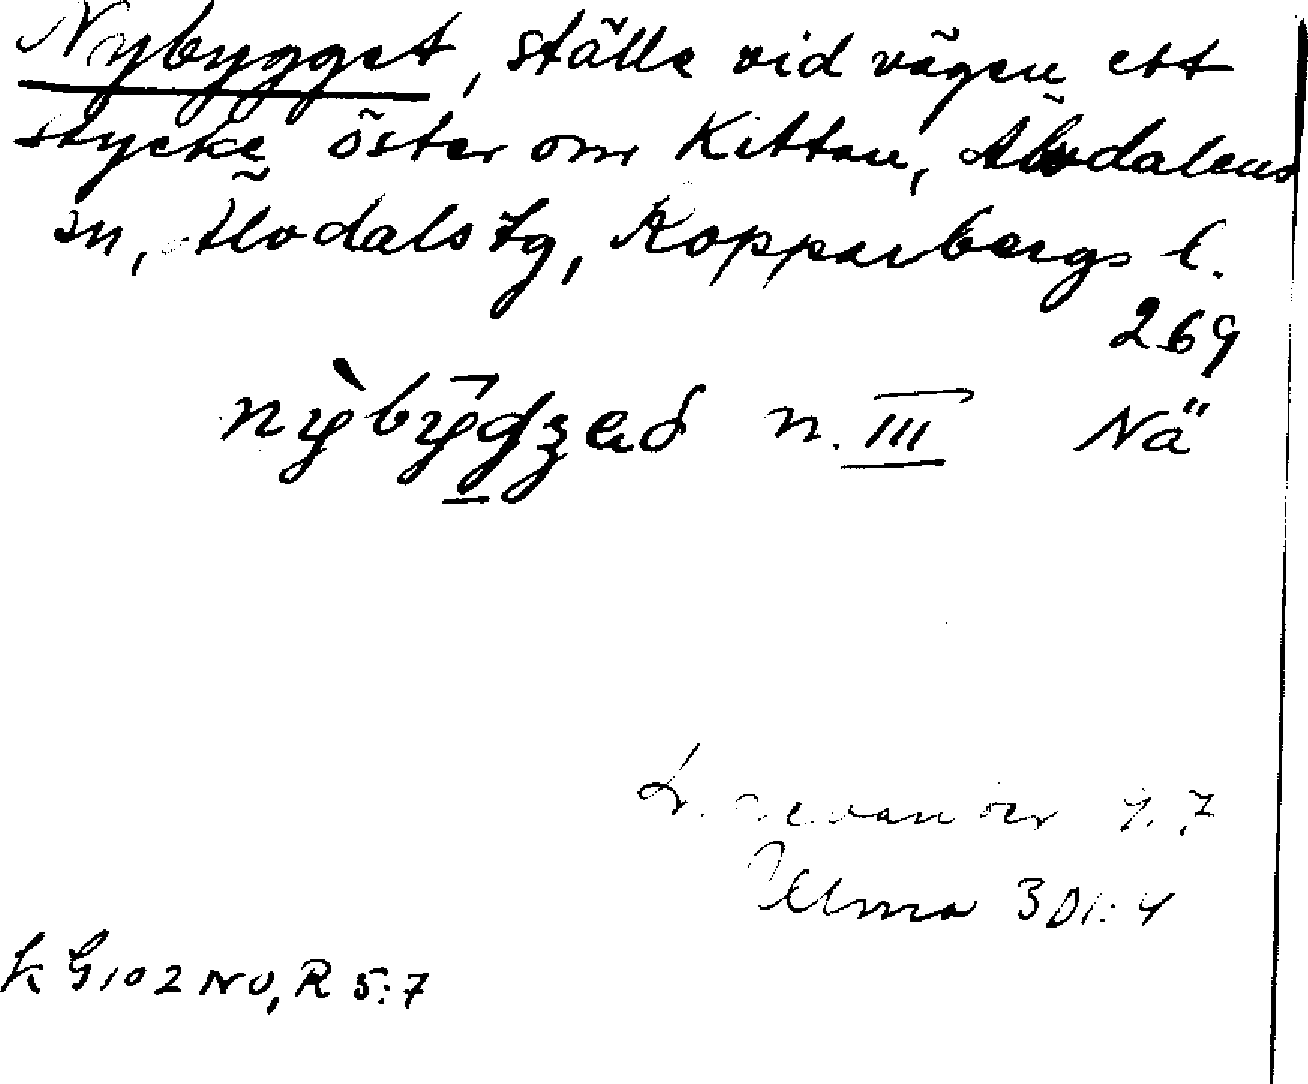 Nybygget, ställe vid vägen ett
stycke öster om Kittan, Älvdalens
sn, Älvdals tg, Kopparbergs l.
269
n. III Nä
L. Levander
Ulma 301:4
k G102 NO, R 5:7